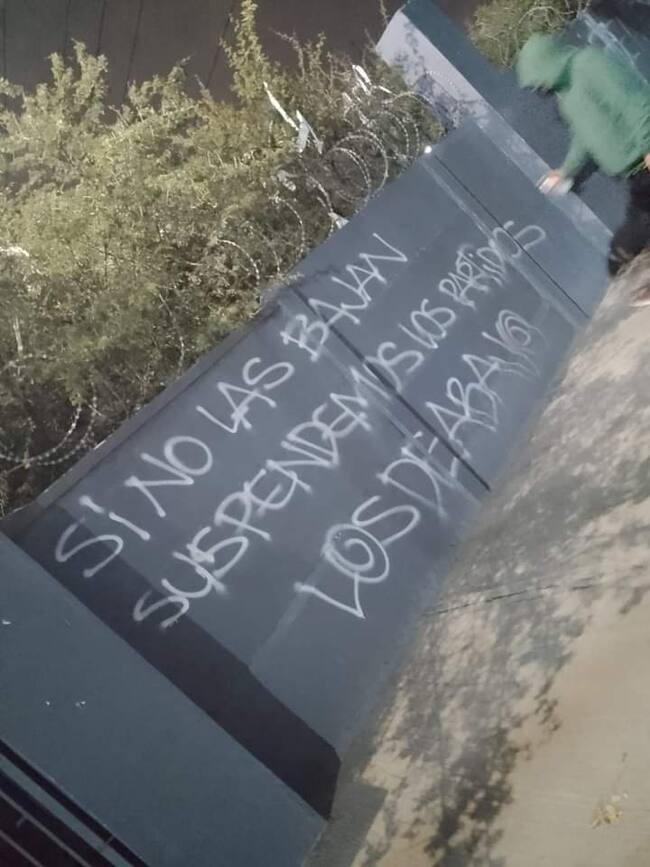 SI NO LAS BAJAN
SUSPENDEMOS LOS PARTIDOS
LOS DE ABAJO